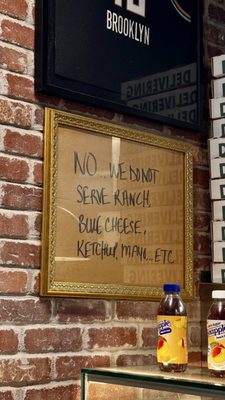 BROOKLYN
DELIVERING
NO... WE DO NOT
SERVE RANCH,
BLUE CHEESE,
KETCHUP, MAYO...ETC